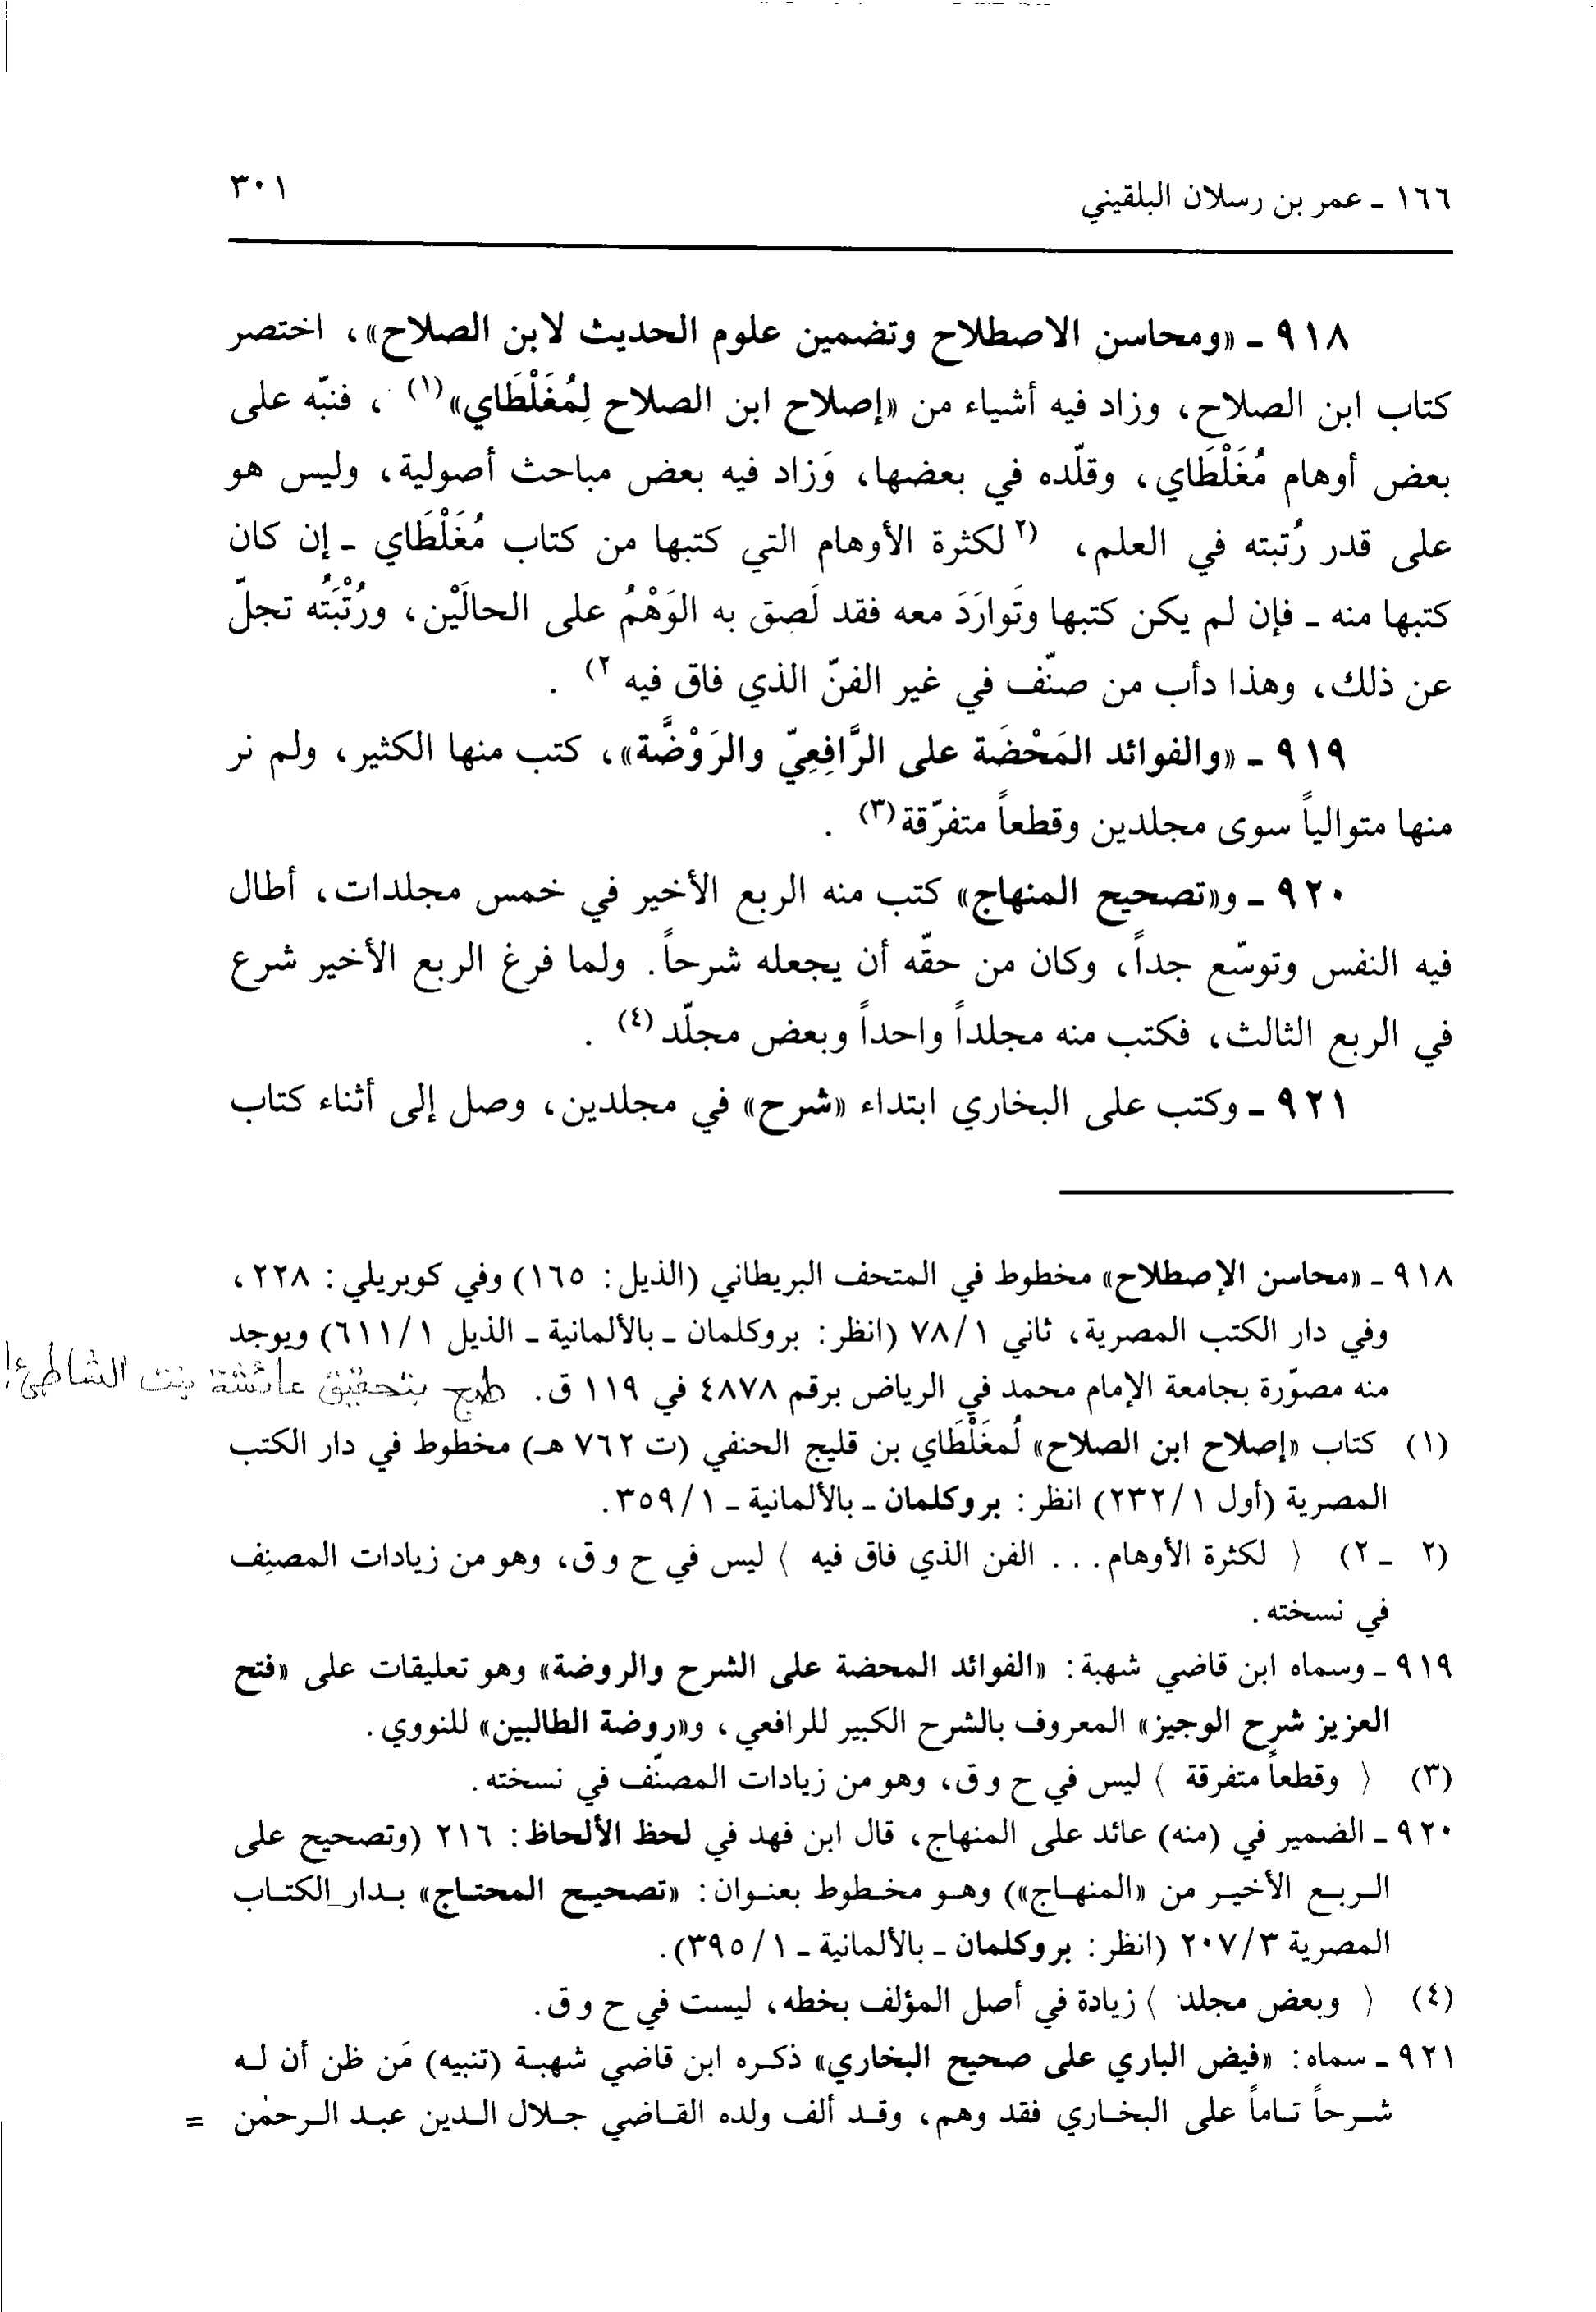 ١٦٦ ـ عمر بن رسلان البلقيني
٣٠١
٩١٨ ـ «ومحاسن الاصطلاح وتضمين علوم الحديث لابن الصلاح»، اختصر
كتاب ابن الصلاح، وزاد فيه أشياء من «إصلاح ابن الصلاح لِمُغَلْطَاي»(١)، فنبّه على
بعض أوهام مُغَلْطَاي، وقلّده في بعضها، وَزاد فيه بعض مباحث أصولية، وليس هو
على قدر رُتبته في العلم، (٢لكثرة الأوهام التي كتبها من كتاب مُغَلْطَاي ـ إن كان
كتبها منه ـ فإن لم يكن كتبها وتَوارَدَ معه فقد لَصِق به الوَهْمُ على الحالَيْن، ورُتْبَتُه تجلّ
عن ذلك، وهذا دأب من صنّف في غير الفنّ الذي فاق فيه ٢).
٩١٩ ـ «والفوائد المَحْضَة على الرَّافِعِيّ والرَوْضَّة»، كتب منها الكثير، ولم نر
منها متوالياً سوى مجلدين وقطعاً متفرّقة(٣).
٩٢٠ ـ و«تصحيح المنهاج» كتب منه الربع الأخير في خمس مجلدات، أطال
فيه النفس وتوسّع جداً، وكان من حقّه أن يجعله شرحاً. ولما فرغ الربع الأخير شرع
في الربع الثالث، فكتب منه مجلداً واحداً وبعض مجلّد(٤).
٩٢١ ـ وكتب على البخاري ابتداء «شرح» في مجلدين، وصل إلى أثناء كتاب
٩١٨ ـ «محاسن الإصطلاح» مخطوط في المتحف البريطاني (الذيل: ١٦٥) وفي كوبريلي: ٢٢٨،
وفي دار الكتب المصرية، ثاني ٧٨/١ (انظر: بروكلمان ـ بالألمانية ـ الذيل ٦١١/١) ويوجد
منه مصوّرة بجامعة الإمام محمد في الرياض برقم ٤٨٧٨ في ١١٩ ق. طبع بتحقيق عائشة بنت الشاطئ!
(١) كتاب «إصلاح ابن الصلاح» لُمغَلْطَاي بن قليج الحنفي (ت ٧٦٢ هـ) مخطوط في دار الكتب
المصرية (أول ٢٣٢/١) انظر: بروكلمان ـ بالألمانية ـ ٣٥٩/١.
(٢ ـ ٢) ⟨ لكثرة الأوهام... الفن الذي فاق فيه ⟩ ليس في ح و ق، وهو من زيادات المصنِف
في نسخته.
٩١٩ ـ وسماه ابن قاضي شهبة: «الفوائد المحضة على الشرح والروضة» وهو تعليقات على «فتح
العزيز شرح الوجيز» المعروف بالشرح الكبير للرافعي، و«روضة الطالبين» للنووي.
(٣) ⟨ وقطعاً متفرقة ⟩ ليس في ح و ق، وهو من زيادات المصنّف في نسخته.
٩٢٠ ـ الضمير في (منه) عائد على المنهاج، قال ابن فهد في لحظ الألحاظ: ٢١٦ (وتصحيح على
الربع الأخير من «المنهاج») وهو مخطوط بعنوان: «تصحيح المحتاج» بدار الكتاب
المصرية ٢٠٧/٣ (انظر: بروكلمان ـ بالألمانية ـ ٣٩٥/١).
(٤) ⟨ وبعض مجلد ⟩ زيادة في أصل المؤلف بخطه، ليست في ح و ق.
٩٢١ ـ سماه: «فيض الباري على صحيح البخاري» ذكره ابن قاضي شهبة (تنبيه) مَن ظن أن له
شرحاً تاماً على البخاري فقد وهم، وقد ألف ولده القاضي جلال الدين عبد الرحمٰن =